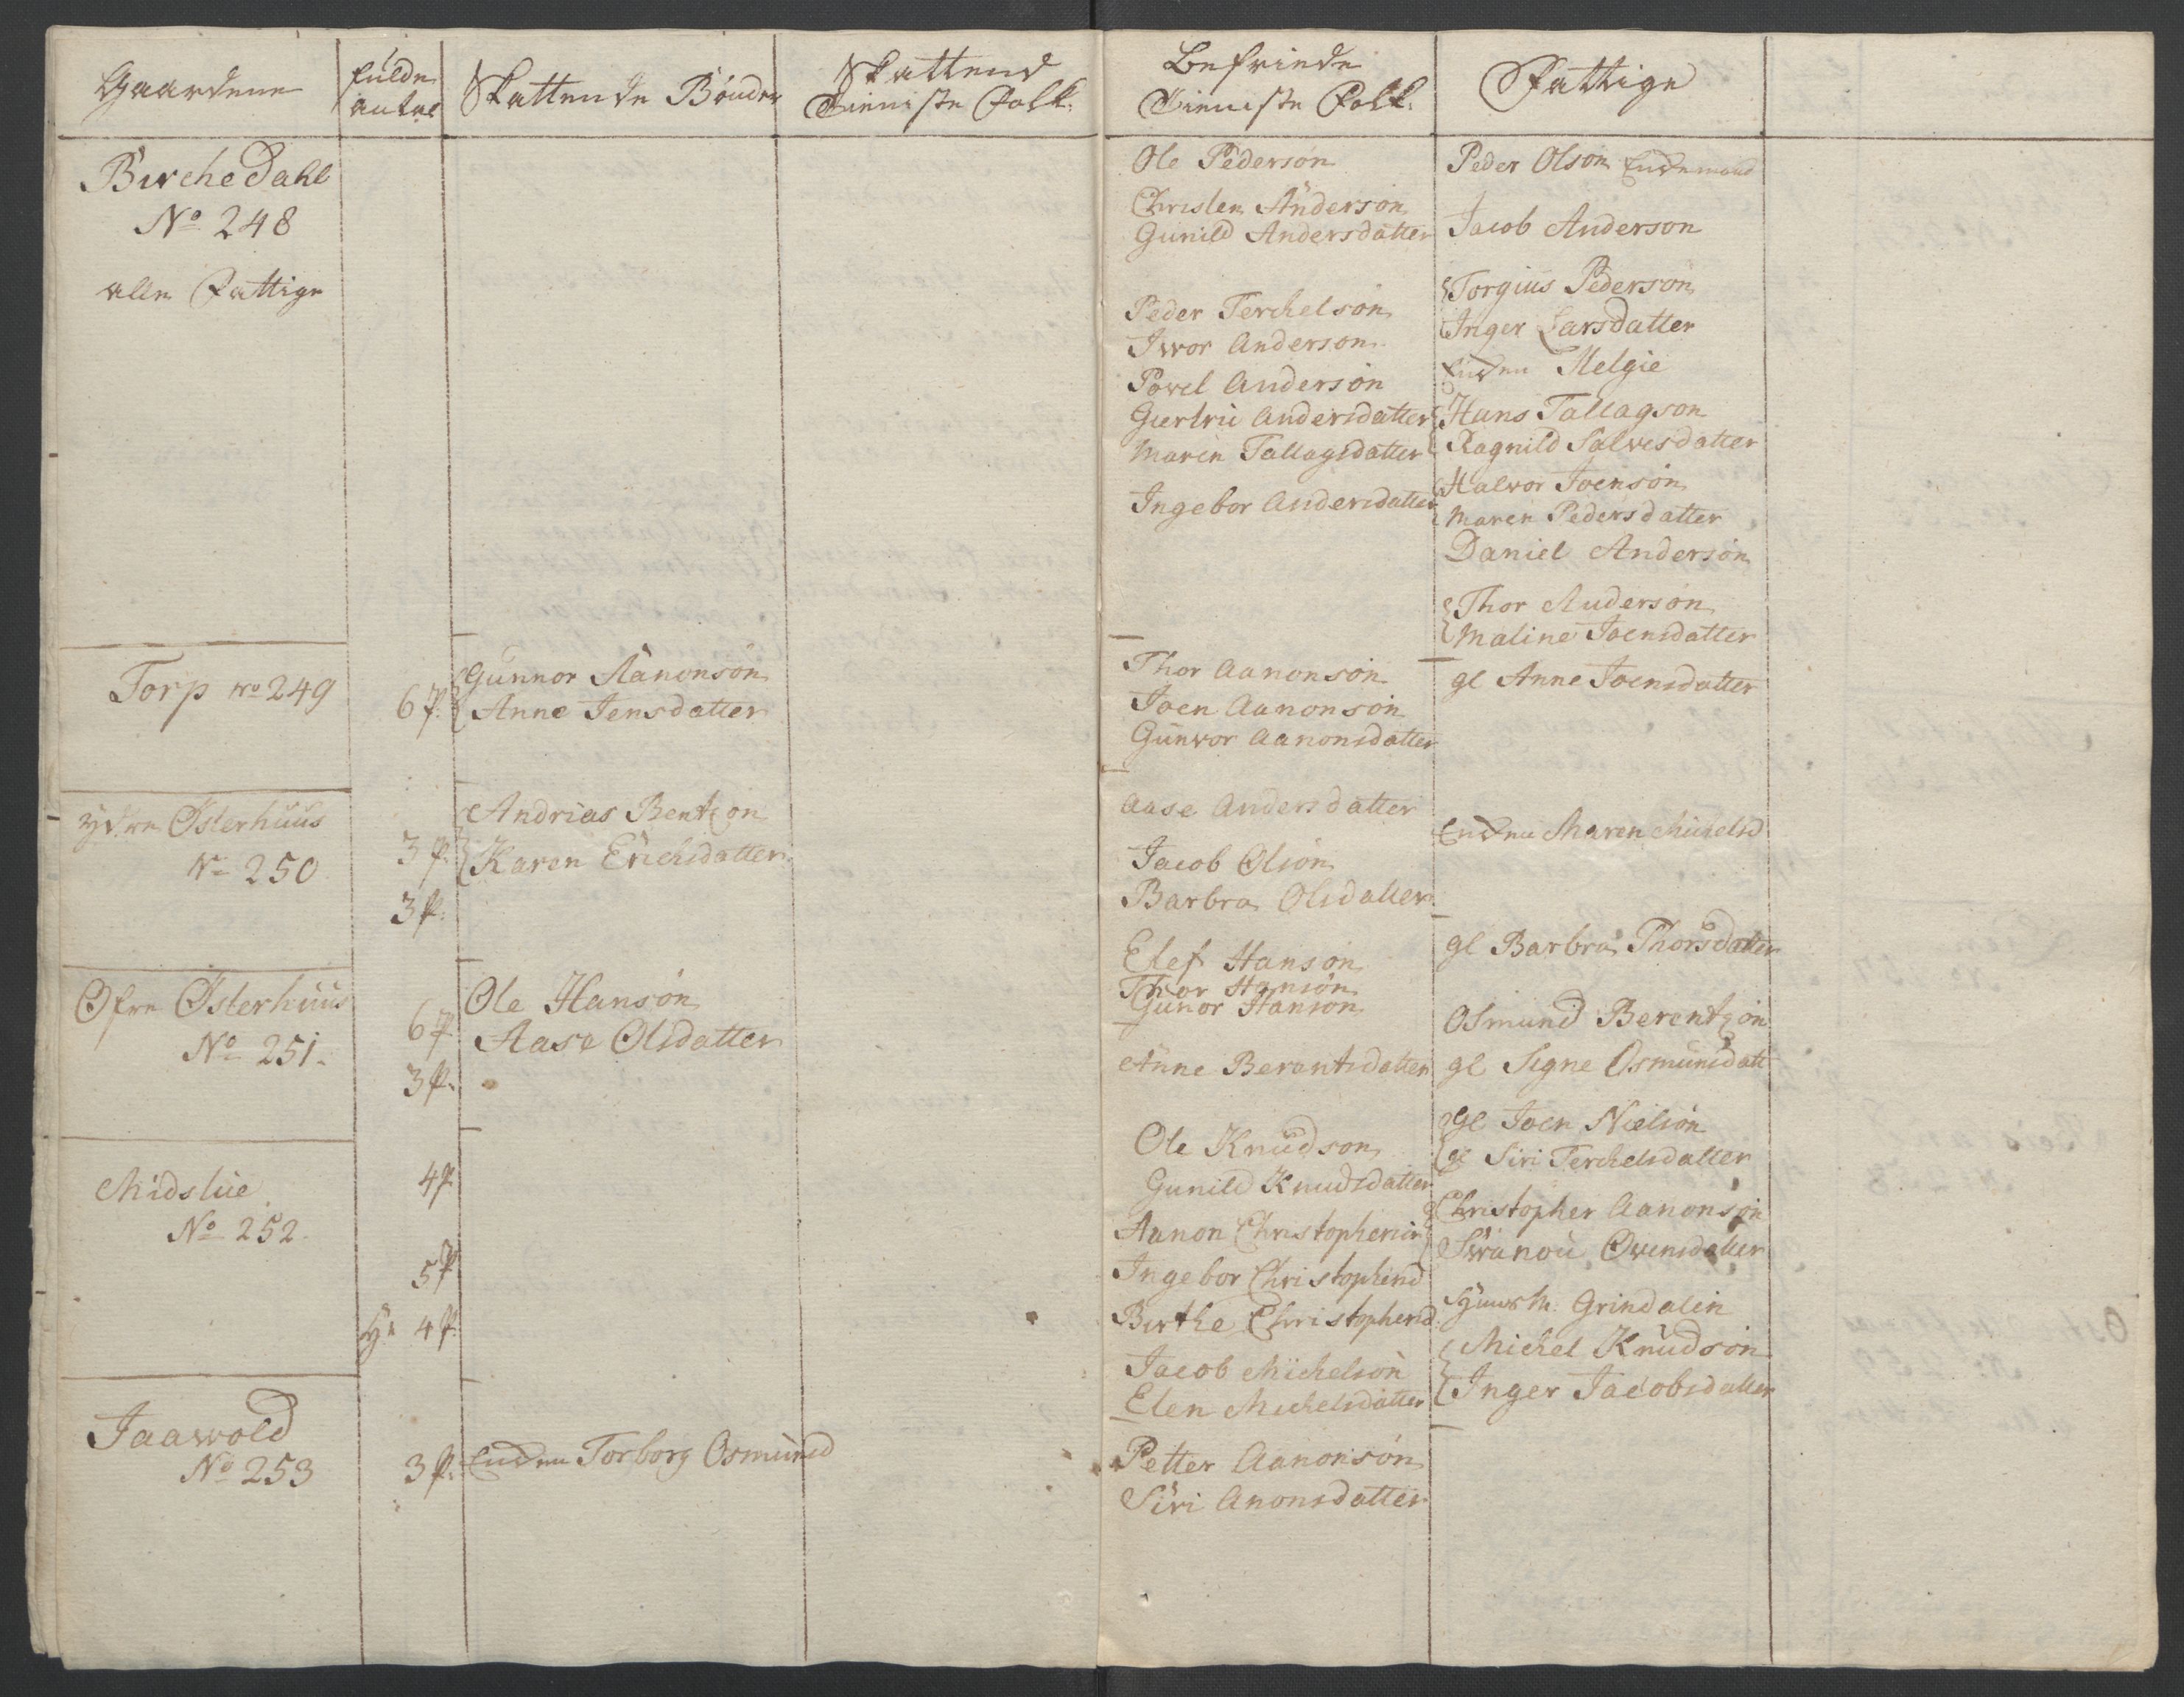 Gaardene
fulde
antal
Skattende Bönder
Skattend
Tieniste Folk.
Befriede
Tieniste Folk.
Fattige
Birchedahl
No 248
alle Fattige
Ole Pedersön
Christen Anderson
Gunild Andersdatter
Peder Terchelsön
Iwor Anderson
Powel Andersön
Giertru Andersdatter
Maren Tallagsdatter
Ingebor Andersdatter
Peder Olsön Enckemand
Jacob Anderson
Torgius Pedersön
Inger Larsdatter
Encken Helgie
Hans Tallagson
Ragnild Salvesdatter
Halvor Joensön
Maren Pedersdatter
Daniel Andersön
Thor Andersön
Maline Joensdatter
Torp no 249
6 p.
Gunnor Aanonsön
Anne Jensdatter
Thor Aanonsön
Joen Aanonsön
Gunvor Aanonsdatter
gl Anne Joensdatter
ydre Østerhuus
No 250
3 p.
3 p.
Andrias Bentzon
Karen Erichsdatter
Aase Andersdatter
Jacob Olsön
Barbra Olsdatter
Encken Maren Michelsd
Øfre Østerhuus
No 251.
6 p
3 p.
Ole Hansön
Aase Olsdatter
Elef Hanson
Thor Hansön
Gunor Hanson
Anne Berentsdatter
gl Barbra Thorsdatter
Osmund Berentzön
gl Signe Osmunsdatt
Midslue
No 252.
4 p
5 p
4 p.
Ole Knudson
Gunild Knudsdatter
Aanon Christophersön
Ingebor Christophersd
Birthe Christophersd
Jacob Michelsön
Elen Michelsdatter
gl Joen Nielsön
gl Siri Terchelsdatter
Christopher Aanonsön
Swanou Ovensdatter
Grindalen
Michel Knudsön
Inger Jacobsdatter
Jaawold
No 253
3 p.
Encken Torborg Osmunsd
Petter Aanonsön
Siri Anonsdatter